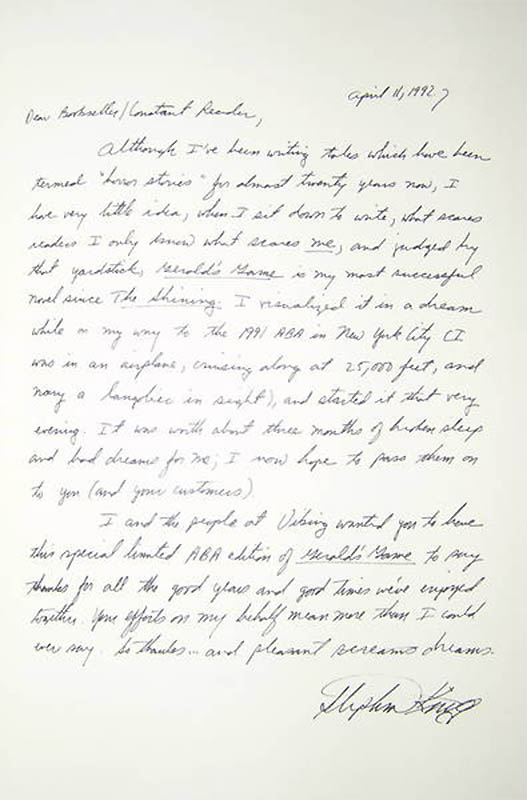 April 11, 1992
Dear Bookseller/Constant Reader,
Although I've been writing tales which have been
termed "horror stories" for almost twenty years now, I
have very little idea, when I sit down to write, what scares
readers I only know what scares me, and judged by
that yardstick, Gerald's Game is my most successful
novel since The Shining. I visualized it in a dream
while on my way to the 1991 ABA in New York City (I
was in an airplane, cruising along at 25,000 feet, and
nary a langolier in sight), and started it that very
evening. It was worth about three months of broken sleep
and bad dreams for me; I now hope to pass them on
to you (and your customers)
I and the people at Viking wanted you to have
this special limited ABA edition of Gerald's Game to say
thanks for all the good years and good times we've enjoyed
together. Your efforts on my behalf mean more than I could
ever say. So thanks... and pleasant screams dreams.
Stephen King